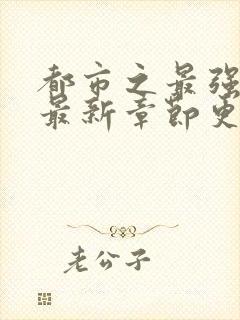 都市之最强
最新章节更
老公子